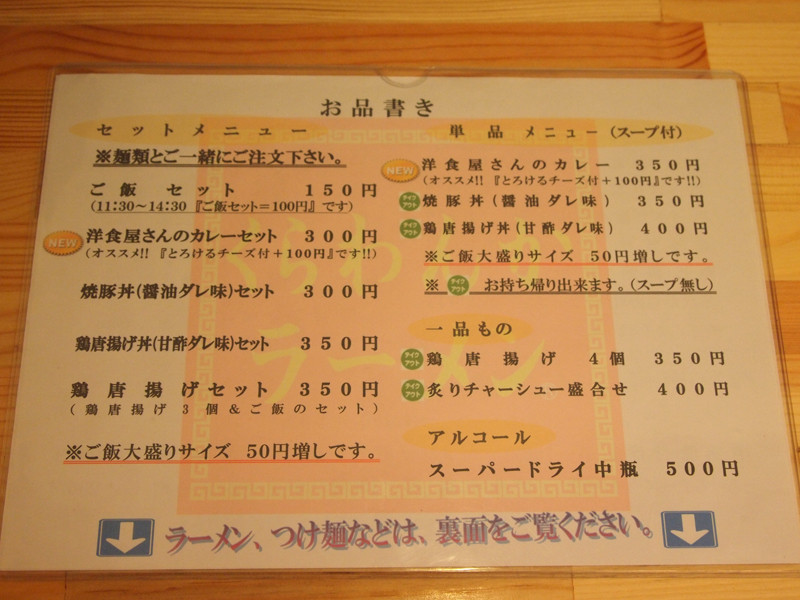 お品書き
セットメニュー
※麺類とご一緒にご注文下さい。
ご飯 セット 150円
(11:30～14:30『ご飯セット=100円』です)
NEW 洋食屋さんのカレーセット 300円
(オススメ!!『とろけるチーズ付+100円』です!!)
焼豚丼(醤油ダレ味)セット 300円
鶏唐揚げ丼(甘酢ダレ味)セット 350円
鶏唐揚げセット 350円
(鶏唐揚げ3個&ご飯のセット)
※ご飯大盛りサイズ 50円増しです。
単品メニュー(スープ付)
NEW 洋食屋さんのカレー 350円
(オススメ!!『とろけるチーズ付+100円』です!!)
テイクアウト 焼豚丼(醤油ダレ味) 350円
テイクアウト 鶏唐揚げ丼(甘酢ダレ味) 400円
※ご飯大盛りサイズ 50円増しです。
※ テイクアウト お持ち帰り出来ます。(スープ無し)
一品もの
テイクアウト 鶏唐揚げ 4個 350円
テイクアウト 炙りチャーシュー盛合せ 400円
アルコール
スーパードライ中瓶 500円
くらわんか
ラーメン
ラーメン、つけ麺などは、裏面をご覧ください。